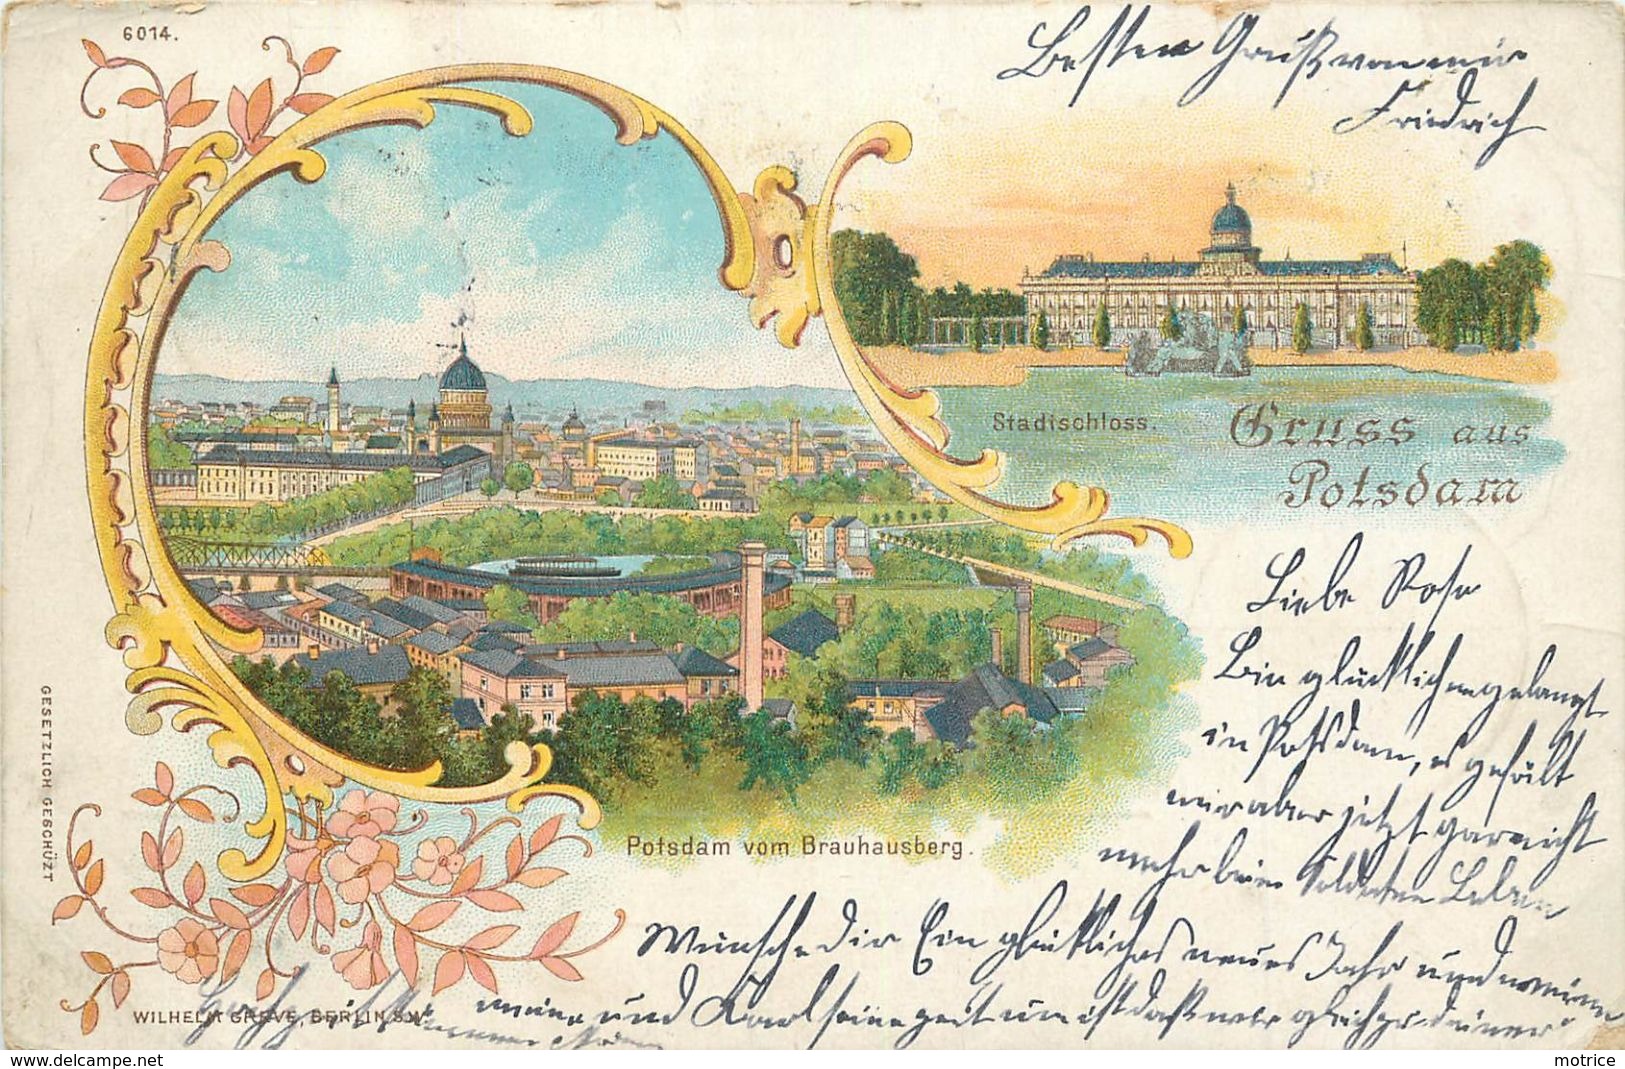 6014.
Besten Gruß von mir
Friedrich
Stadtschloss.
Gruss aus
Potsdam
Liebe Rosa
Bin glücklich angelangt
in Potsdam, es gefält
mir aber jetzt garnicht
mehr beim Soldaten Leben
Potsdam vom Brauhausberg.
Wünsche dir Ein glückliches neues Jahr und
meine und Karl seine Zeit um ist daß wir gleich zu deiner
GESETZLICH GESCHÜZT
WILHELM GREVE, BERLIN S.W.
delcampe.net
motrice